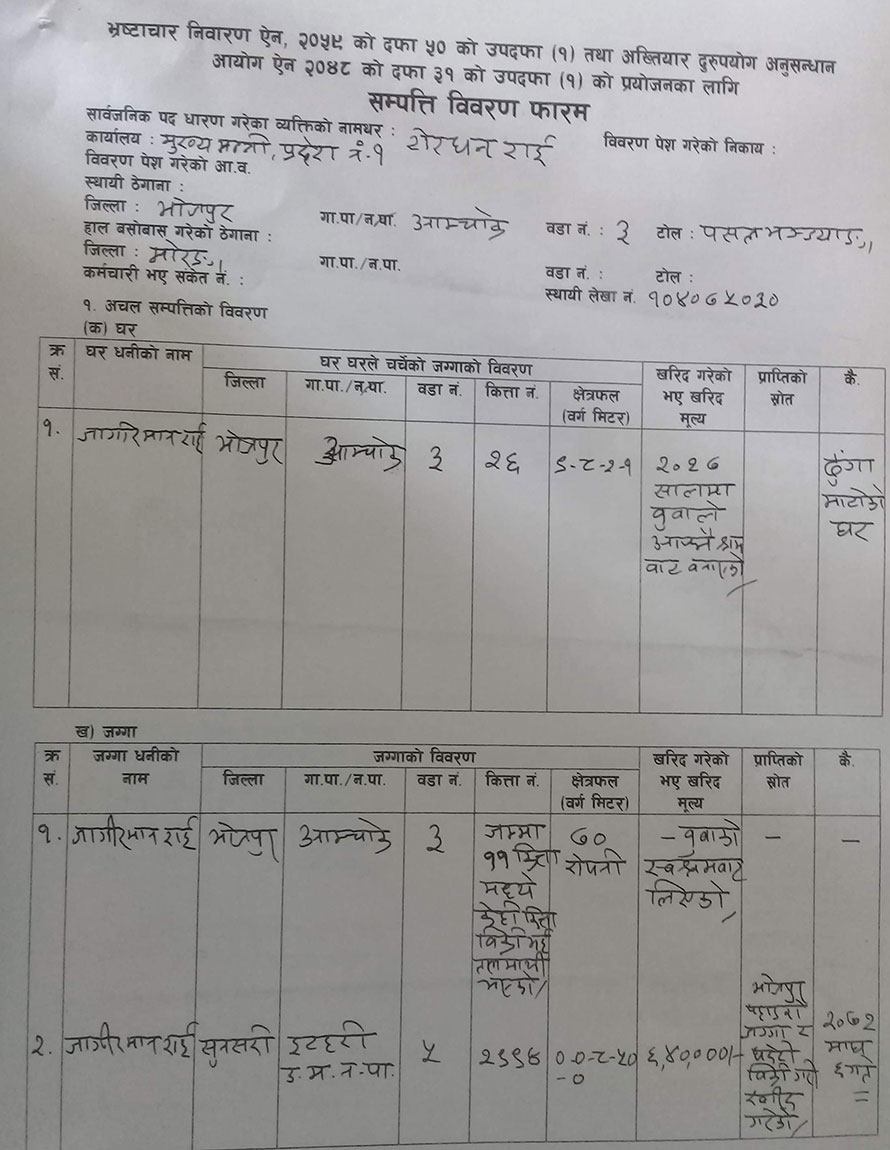 भ्रष्टाचार निवारण ऐन, २०५९ को दफा ५० को उपदफा (१) तथा अख्तियार दुरुपयोग अनुसन्धान
आयोग ऐन २०४८ को दफा ३१ को उपदफा (१) को प्रयोजनका लागि
सम्पत्ति विवरण फारम
सार्वजनिक पद धारण गरेका व्यक्तिको नामथर : शेरधन राई विवरण पेश गरेको निकाय :
कार्यालय : मुख्य मन्त्री, प्रदेश नं.-१
विवरण पेश गरेको आ.व.
स्थायी ठेगाना :
जिल्ला : भोजपुर गा.पा/न.पा. आमचोक वडा नं. : ३ टोल :
हाल बसोबास गरेको ठेगाना :
जिल्ला : मोरङ गा.पा./न.पा. वडा नं. : टोल :
कर्मचारी भए संकेत नं. : स्थायी लेखा नं. १०४०७५०२०
१. अचल सम्पत्तिको विवरण
(क) घर
क्र सं. घर धनीको नाम घर घरले चर्चेको जग्गाको विवरण खरिद गरेको भए खरिद मूल्य प्राप्तिको स्रोत कै.
जिल्ला गा.पा./न.पा. वडा नं. कित्ता नं. क्षेत्रफल (वर्ग मिटर)
१. जागिरमान राई भोजपुर आमचोक ३ २६ ९-८-२-१ २०२७
सालमा
वुवाले
आफ्नै श्रम
वाट बनाएको
ढुंगा
माटोको
घर
ख) जग्गा
क्र सं. जग्गा धनीको नाम जग्गाको विवरण खरिद गरेको भए खरिद मूल्य प्राप्तिको स्रोत कै.
जिल्ला गा.पा./न.पा. वडा नं. कित्ता नं. क्षेत्रफल (वर्ग मिटर)
१. जागीरमान राई भोजपुर आमचोक ३ जम्मा
११ कित्ता
मध्ये
केही कित्ता
विक्री भई
तलमाथी
भएको
७०
रोपनी
- वुवाको
स्वश्रमवाट
लिएको
-
-
२. जागीरमान राई सुनसरी इटहरी
उ.म.न.पा.
५ २९९४ ०-०-८-५०
-०
६,४०,०००/-
भोजपुर
पहाडको
जग्गा र
घडेरी
विक्री गरी
खरीद
गरेको
२०७२
माघ
६ गते